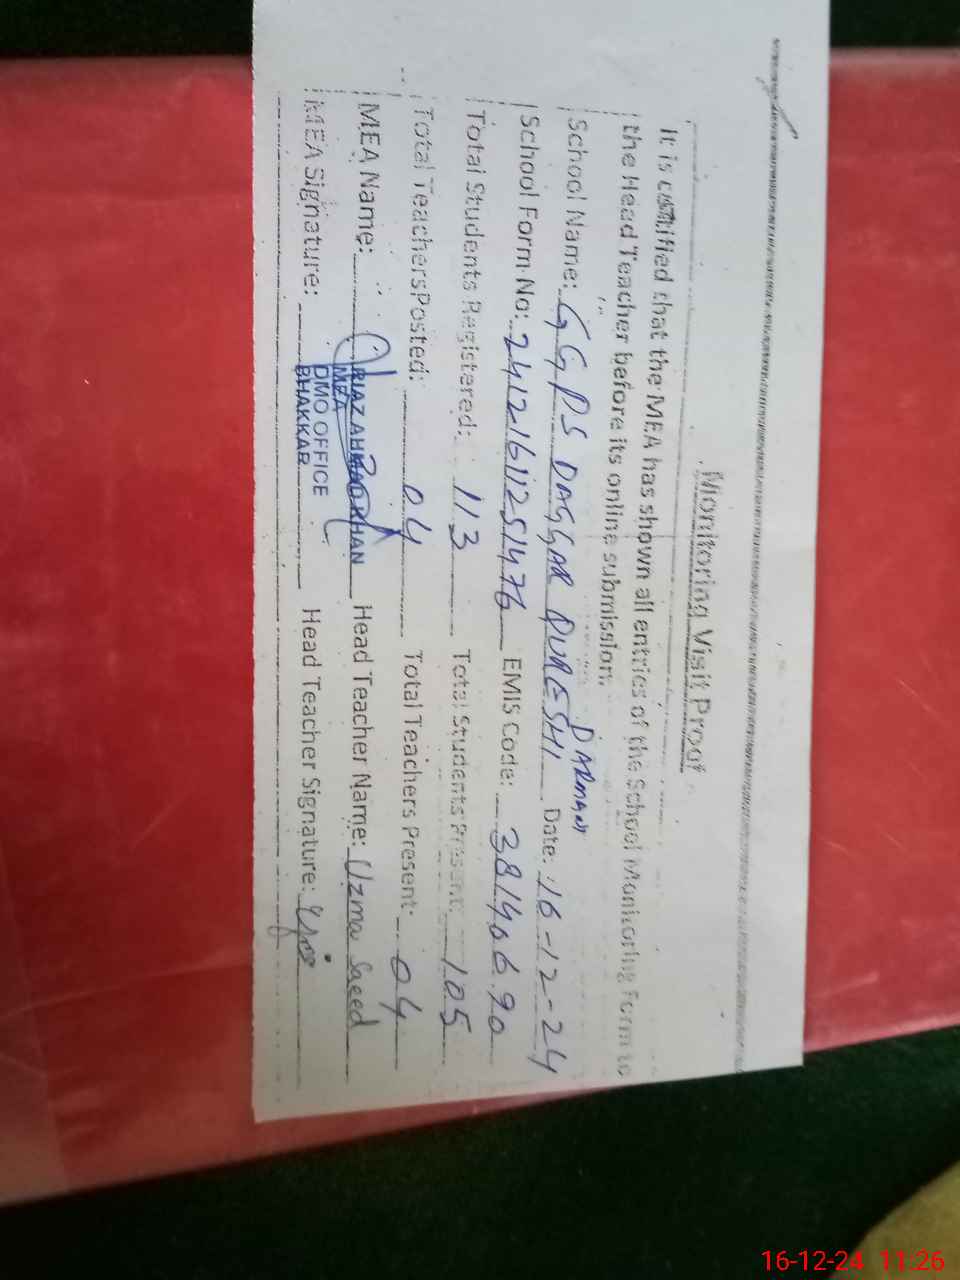 Monitoring Visit Proof
It is certified that the MEA has shown all entries of the School Monitoring Form to
the Head Teacher before its online submission.
DARMAN
School Name: GGPS DAGGAR QURESHI Date: 16-12-24
School Form No: 24121611251476 EMIS Code: 38140690
Total Students Registered: 113 Total Students Present: 105
Total Teachers Posted: 04 Total Teachers Present: 04
MEA Name: RIAZ AHMAD KHAN Head Teacher Name: Uzma Saeed
MEA
DMO OFFICE
BHAKKAR
MEA Signature: Head Teacher Signature:
16-12-24 11:26